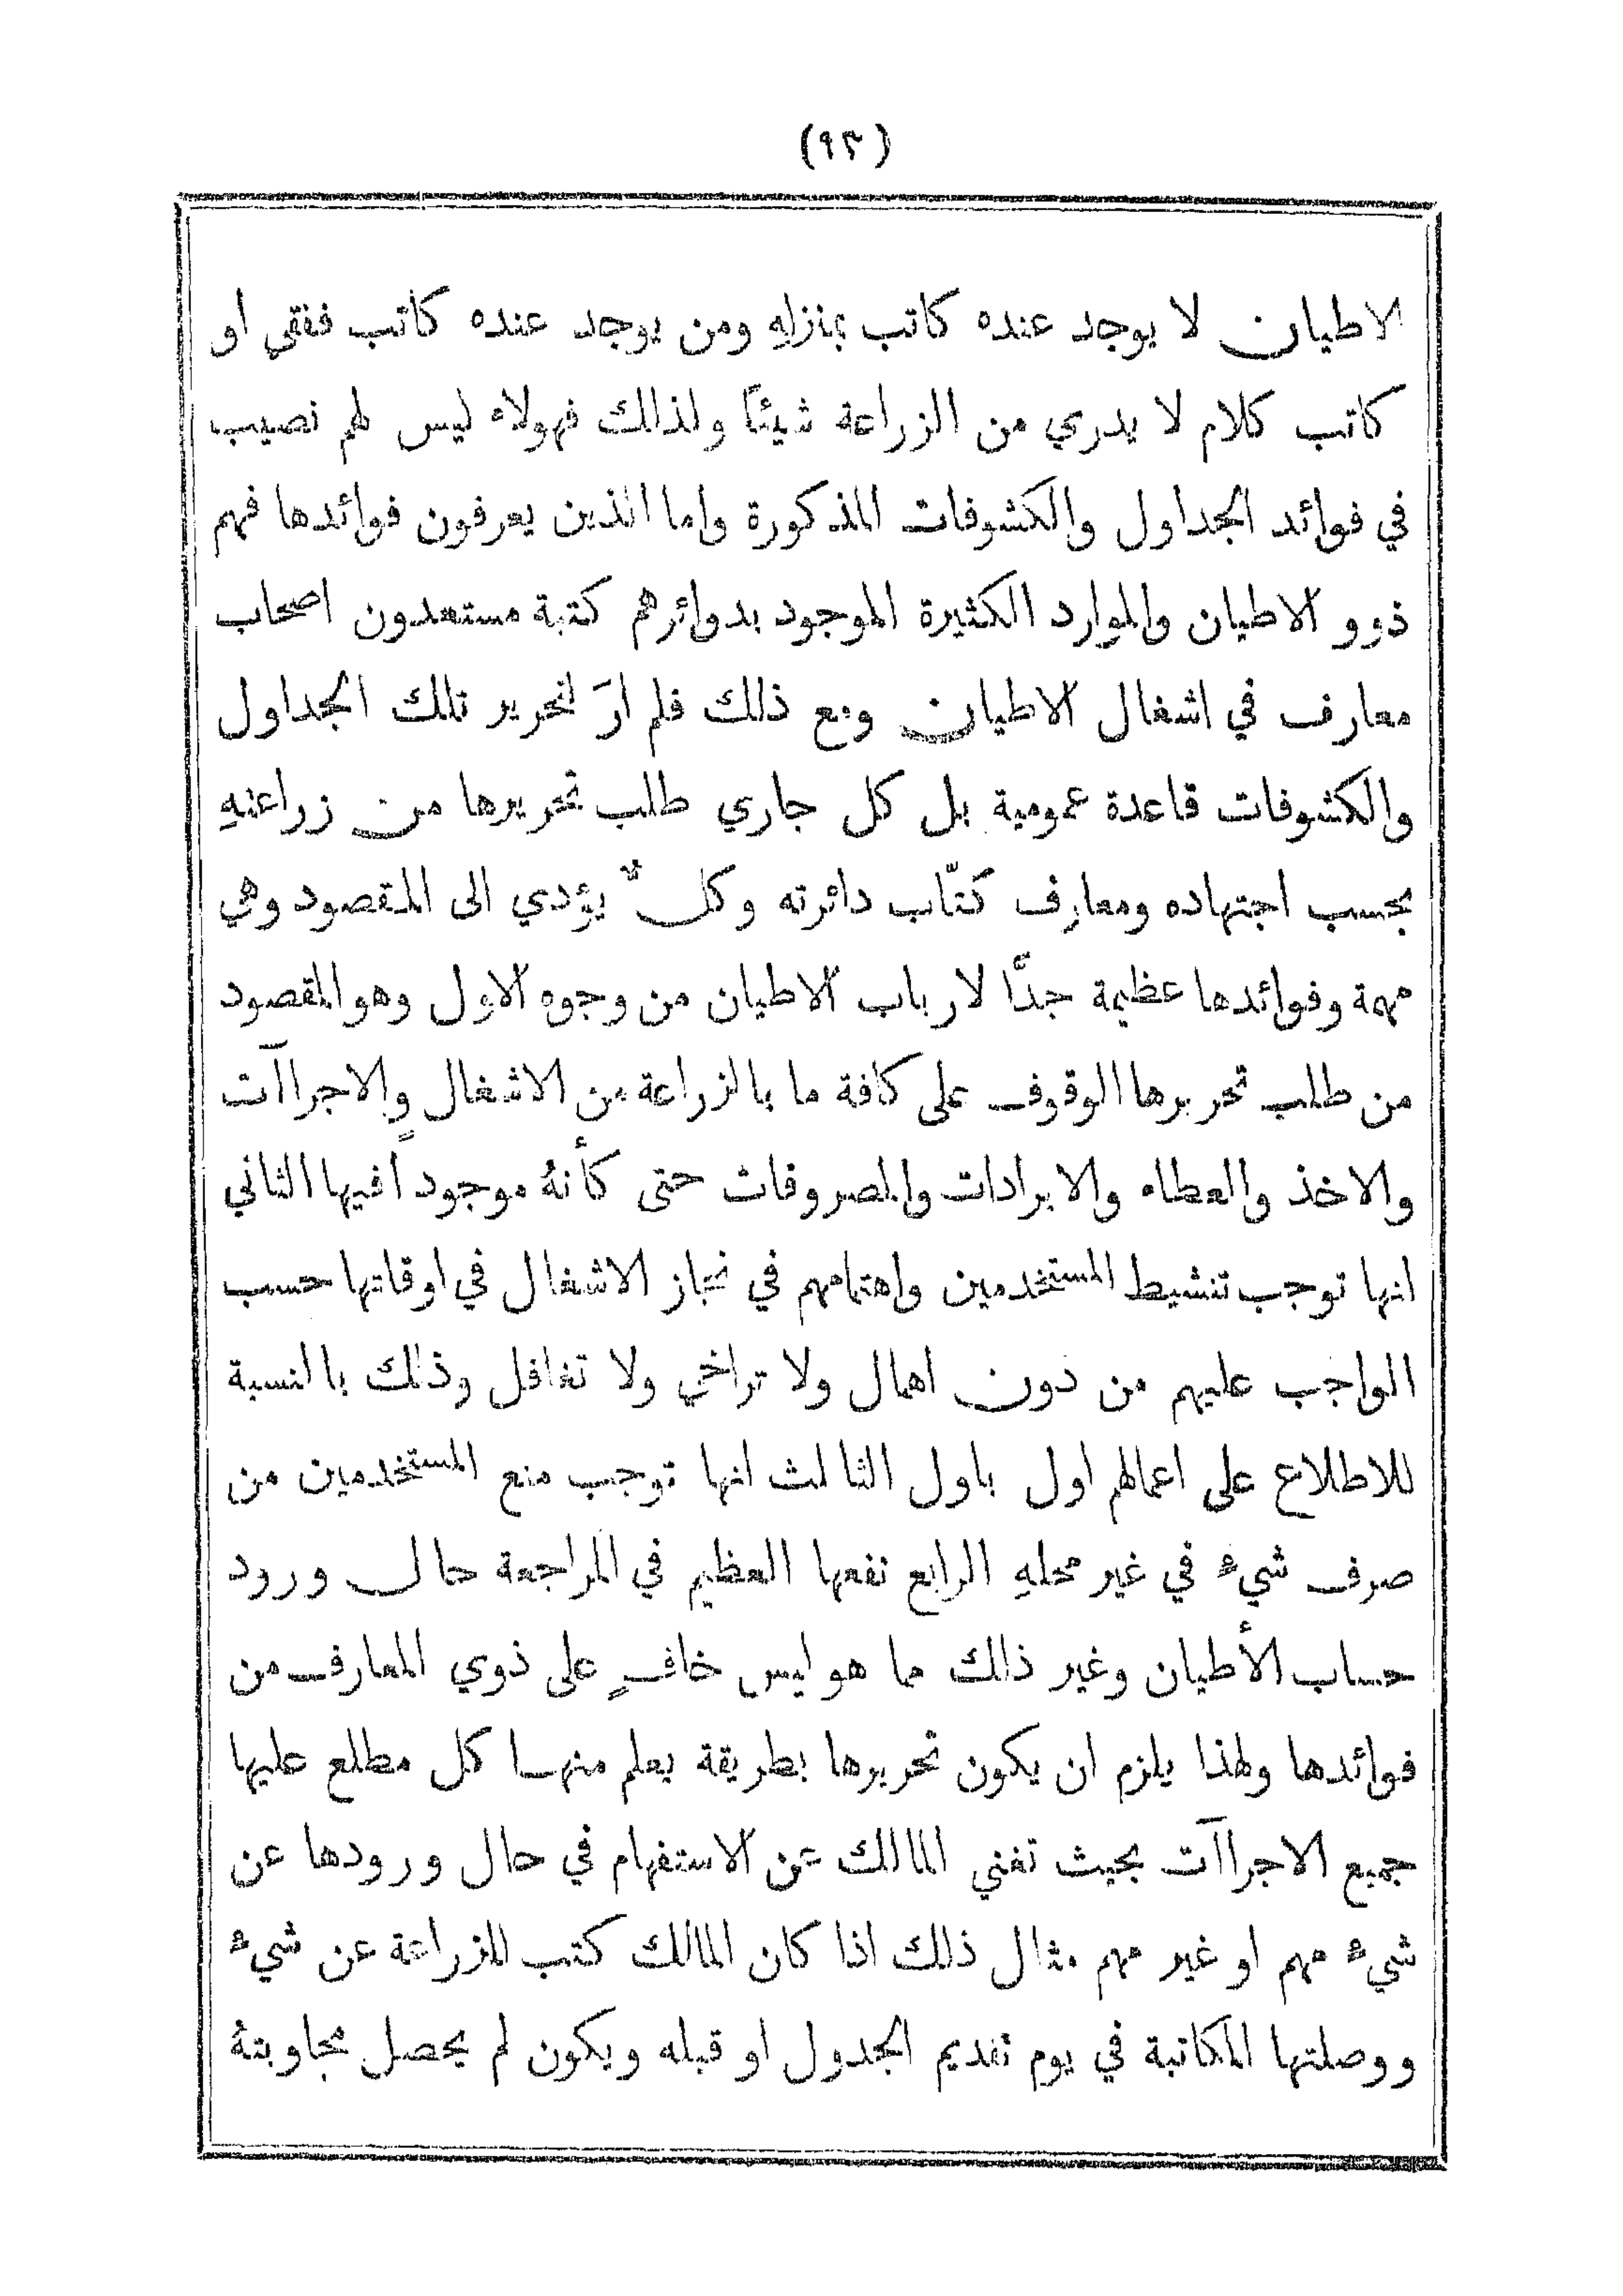 (٩٣)
الاطيان لا يوجد عنده كاتب بمنزلهِ ومن يوجد عنده كاتب ففقي او
كاتب كلام لا يدري من الزراعة شيئًا ولذلك فهولاء ليس لهم نصيب
في فوائد الجداول والكشوفات المذكورة واما الذين يعرفون فوائدها فهم
ذوو الاطيان والموارد الكثيرة الموجود بدوائرهم كتبة مستعدون اصحاب
معارف في اشغال الاطيان ومع ذلك فلم ارَ لتحرير تلك الجداول
والكشوفات قاعدة عمومية بل كل جاري طلب تحريرها من زراعتهِ
بحسب اجتهاده ومعارف كتّاب دائرته وكلٌ يؤدي الى المقصود وهي
مهمة وفوائدها عظيمة جدًّا لارباب الاطيان من وجوه الاول وهو المقصود
من طلب تحريرها الوقوف على كافة ما بالزراعة من الاشغال والاجراآت
والاخذ والعطاء والايرادات والمصروفات حتى كأنهُ موجود اً فيها الثاني
انها توجب تنشيط المستخدمين واهتمامهم في نجاز الاشغال في اوقاتها حسب
الواجب عليهم من دون اهمال ولا تراخي ولا تغافل وذلك بالنسبة
للاطلاع على اعمالهم اول باول الثالث انها توجب منع المستخدمين من
صرف شيء في غير محلهِ الرابع نفعها العظيم في المراجعة حال ورود
حساب الأطيان وغير ذلك مما هو ليس خافٍ على ذوي المعارف من
فوائدها ولهذا يلزم ان يكون تحريرها بطريقة يعلم منها كل مطلع عليها
جميع الاجراآت بحيث تغني المالك عن الاستفهام في حال ورودها عن
شيء مهم او غير مهم مثال ذلك اذا كان المالك كتب للزراعة عن شيء
ووصلتها المكاتبة في يوم تقديم الجدول او قبله ويكون لم يحصل مجاوبتهُ